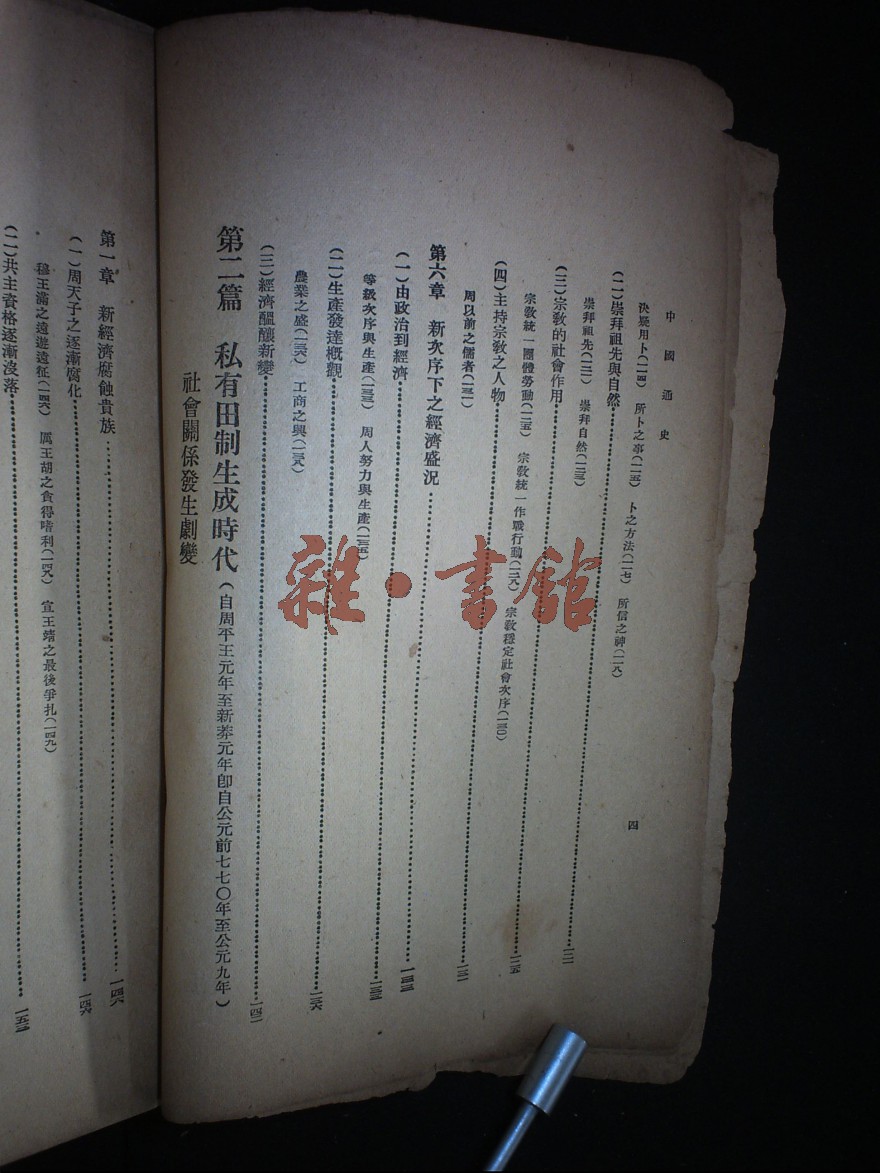 中國通史
四
決疑用卜(一一四) 所卜之事(一一五) 卜之方法(一一七) 所信之神(一一八)
(二)崇拜祖先與自然……一二一
崇拜祖先(一二一) 崇拜自然(一二三)
(三)宗教的社會作用……一二五
宗教統一團體勞動(一二五) 宗教統一作戰行動(一二八) 宗教穩定社會次序(一三〇)
(四)主持宗教之人物……一三一
周以前之儒者(一三一)
第六章 新次序下之經濟盛況……一三三
(一)由政治到經濟……一三三
等級次序與生產(一三三) 周人努力與生產(一三五)
(二)生產發達概觀……一三六
農業之盛(一三六) 工商之興(一三八)
(三)經濟醞釀新變……一四二
第二篇 私有田制生成時代(自周平王元年至新莽元年即自公元前七七〇年至公元九年)
社會關係發生劇變
第一章 新經濟腐蝕貴族……一四六
(一)周天子之逐漸腐化……一四六
穆王滿之遠遊遠征(一四六) 厲王胡之貪得嗜利(一四八) 宣王靖之最後爭扎(一四九)
(二)共主資格逐漸沒落……一五三
雜·書館